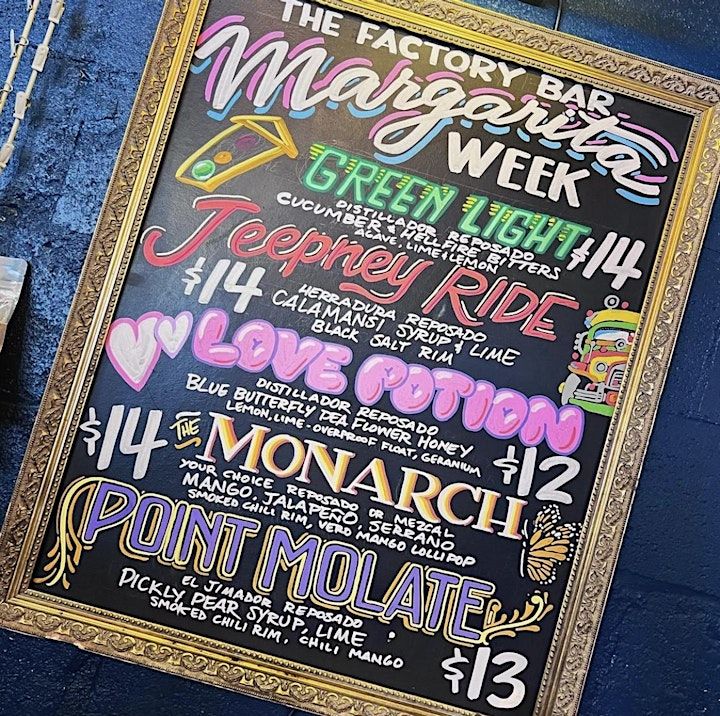 THE FACTORY BAR
Margarita
WEEK
GREEN LIGHT
DISTILLADOR REPOSADO
CUCUMBER & HELLFIRE BITTERS
AGAVE, LIME & LEMON
$14
Jeepney RIDE
HERRADURA REPOSADO
CALAMANSI SYRUP & LIME
BLACK SALT RIM
$14
LOVE POTION
DISTILLADOR REPOSADO
BLUE BUTTERFLY PEA FLOWER HONEY
LEMON, LIME - OVERPROOF FLOAT, GERANIUM
$12
$14
THE MONARCH
YOUR CHOICE REPOSADO OR MEZCAL
MANGO, JALAPEÑO, SERRANO
SMOKED CHILI RIM, VERO MANGO LOLLIPOP
POINT MOLATE
EL JIMADOR REPOSADO
PICKLY PEAR SYRUP, LIME
SMOKED CHILI RIM, CHILI MANGO
$13